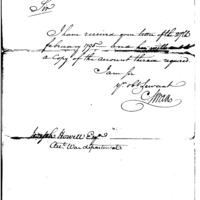 Sir
I have received your letter of the 27th
february 1795 – and
a Copy of the account therein required
I am Sir
Yr. obt. Servant
Joseph Howell Esqr.
Acct. War department